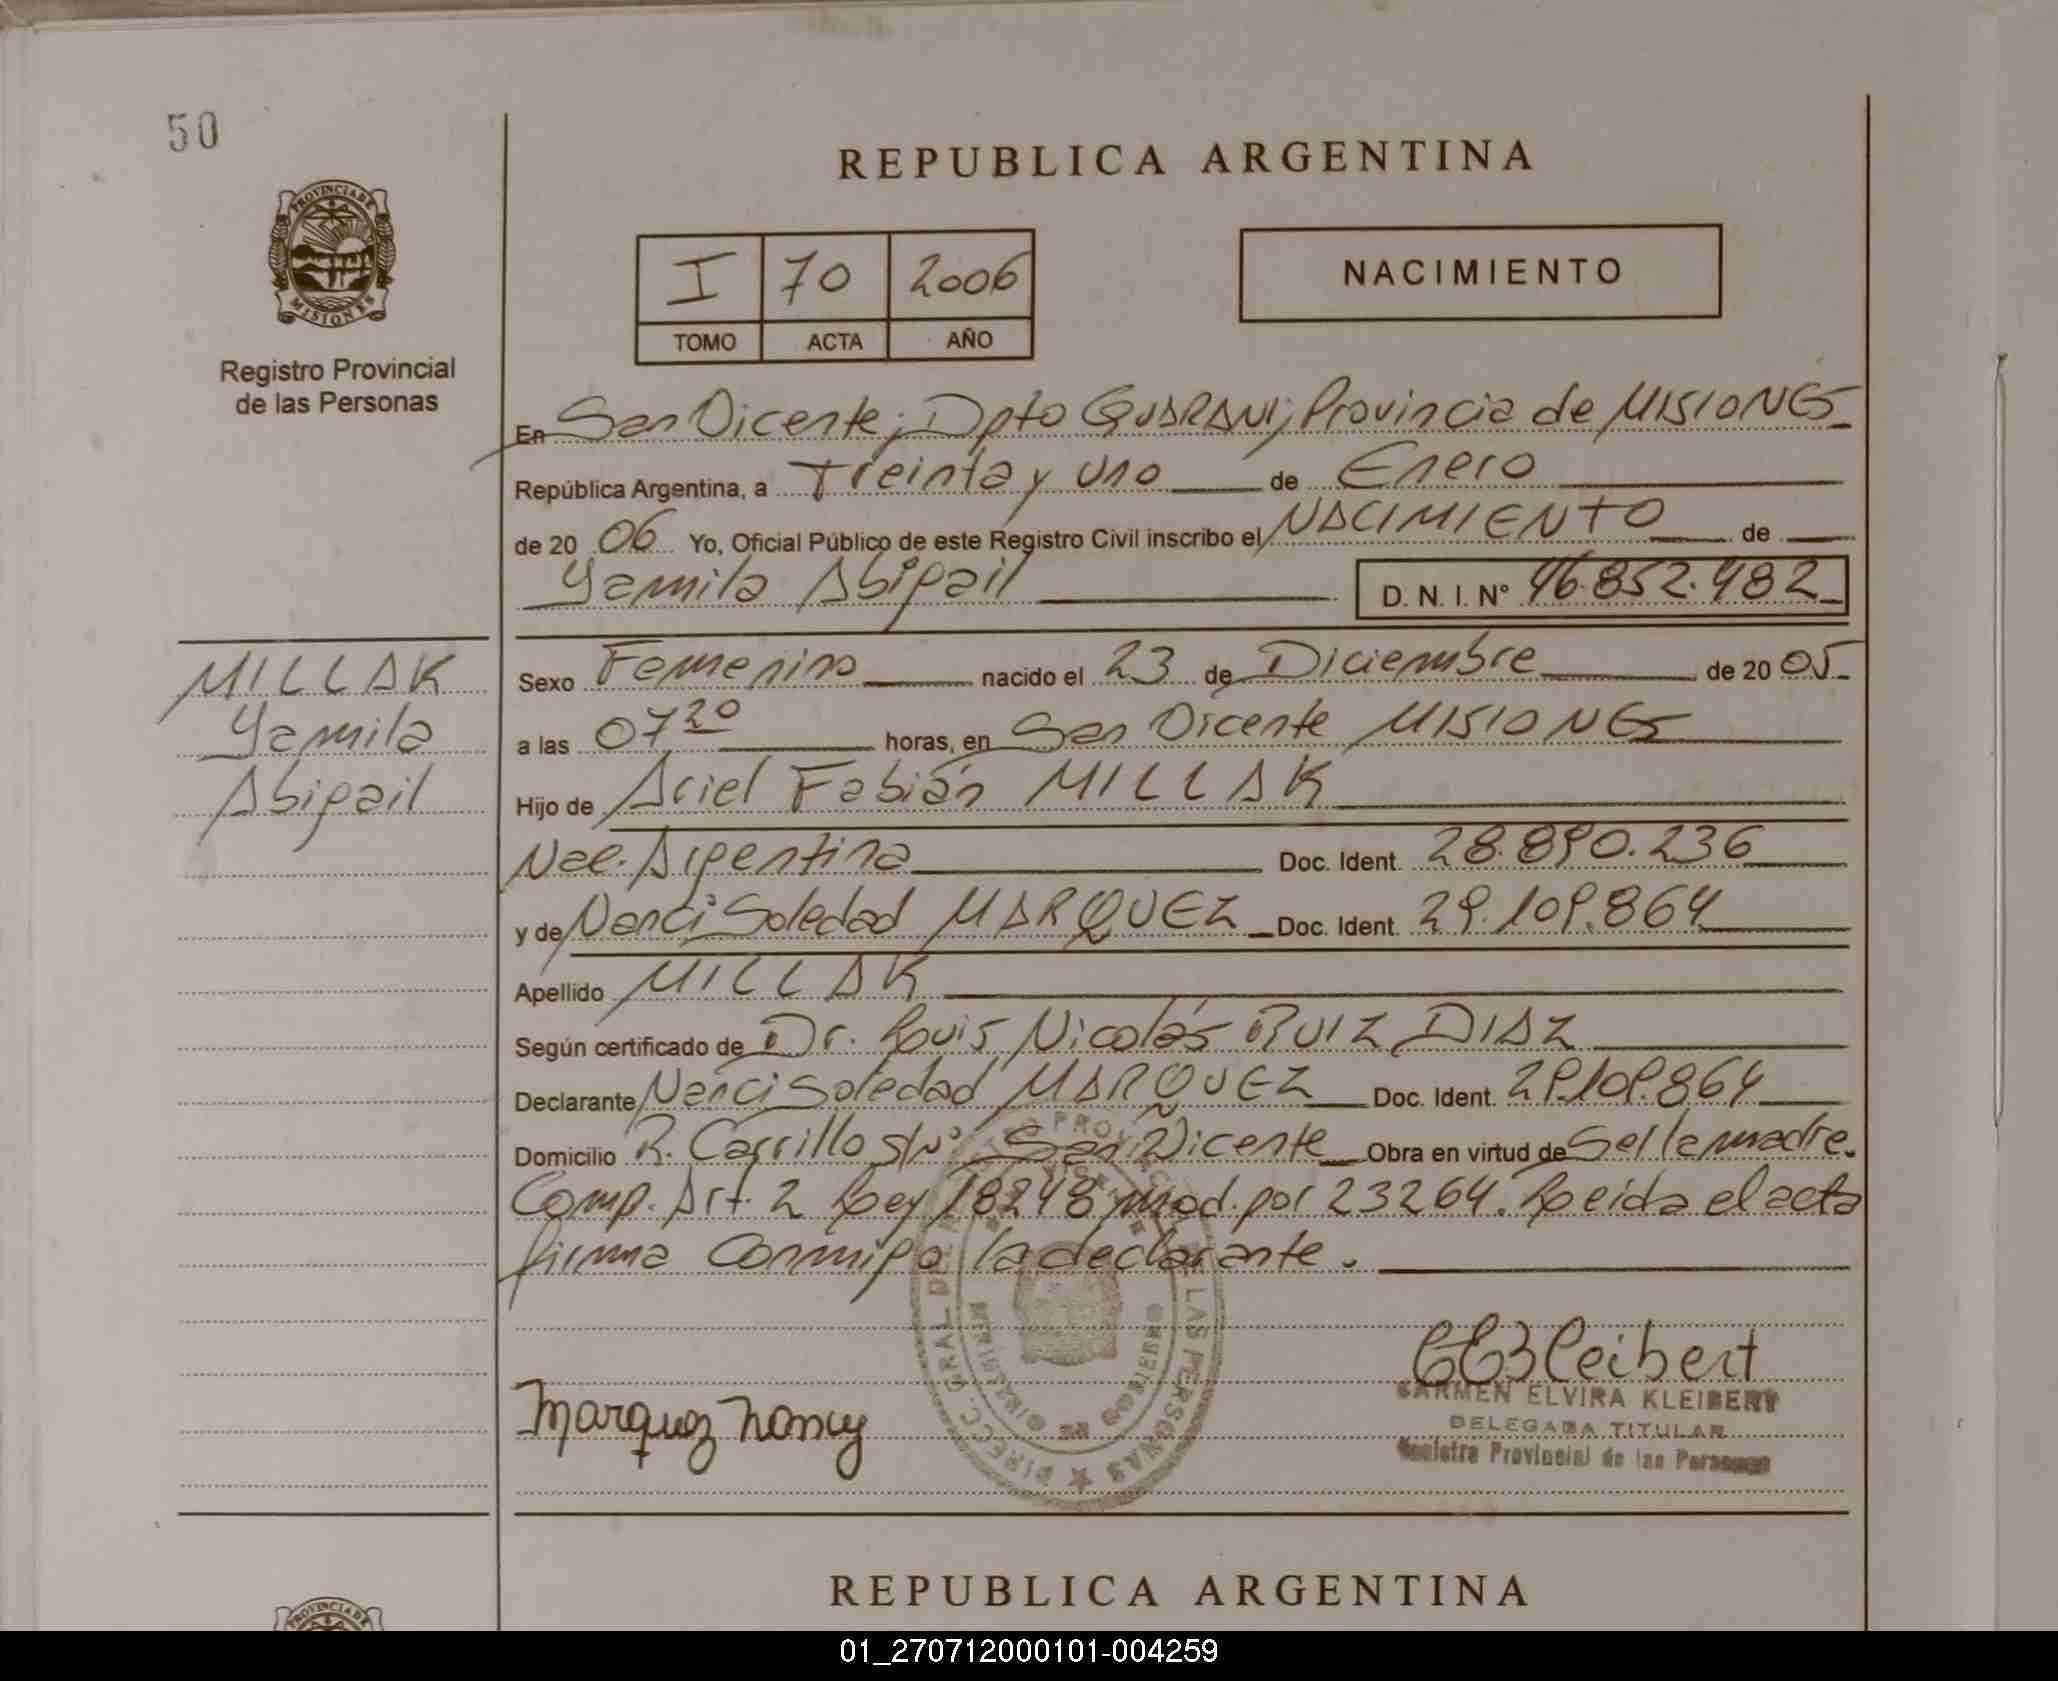 50
REPUBLICA ARGENTINA
PROVINCIA DE MISIONES
Registro Provincial
de las Personas
I 70 2006
TOMO ACTA AÑO
NACIMIENTO
En San Vicente; Dpto GUARANI; Provincia de MISIONES
República Argentina, a Treinta y uno de Enero
de 20 06 Yo, Oficial Público de este Registro Civil inscribo el NACIMIENTO de
Yamila Abigail D. N. I. N° 46.852.482
MILLAK
Yamila
Abigail
Sexo Femenino nacido el 23 de Diciembre de 20 05
a las 07 20 horas, en San Vicente MISIONES
Hijo de Ariel Fabián MILLAK
Nac. Argentina Doc. Ident. 28.890.236
y de Nanci Soledad MARQUEZ Doc. Ident. 29.109.864
Apellido MILLAK
Según certificado de Dr. Louis Nicolás RUIZ DIAZ
Declarante Nanci Soledad MARQUEZ Doc. Ident. 29.109.864
Domicilio R. Carrillo s/n° San Vicente Obra en virtud de Ser la madre.
Comp. Art. 2 Ley 18248 mod. por 23264. Leida el acta
firma conmigo la declarante.
DIRECC. GRAL DE LAS PERSONAS
MINISTERIO DE GOBIERNO
Marquez Nancy
CEKleibert
CARMEN ELVIRA KLEIBERT
DELEGADA TITULAR
Registro Provincial de las Personas
REPUBLICA ARGENTINA
PROVINCIA DE
01_270712000101-004259